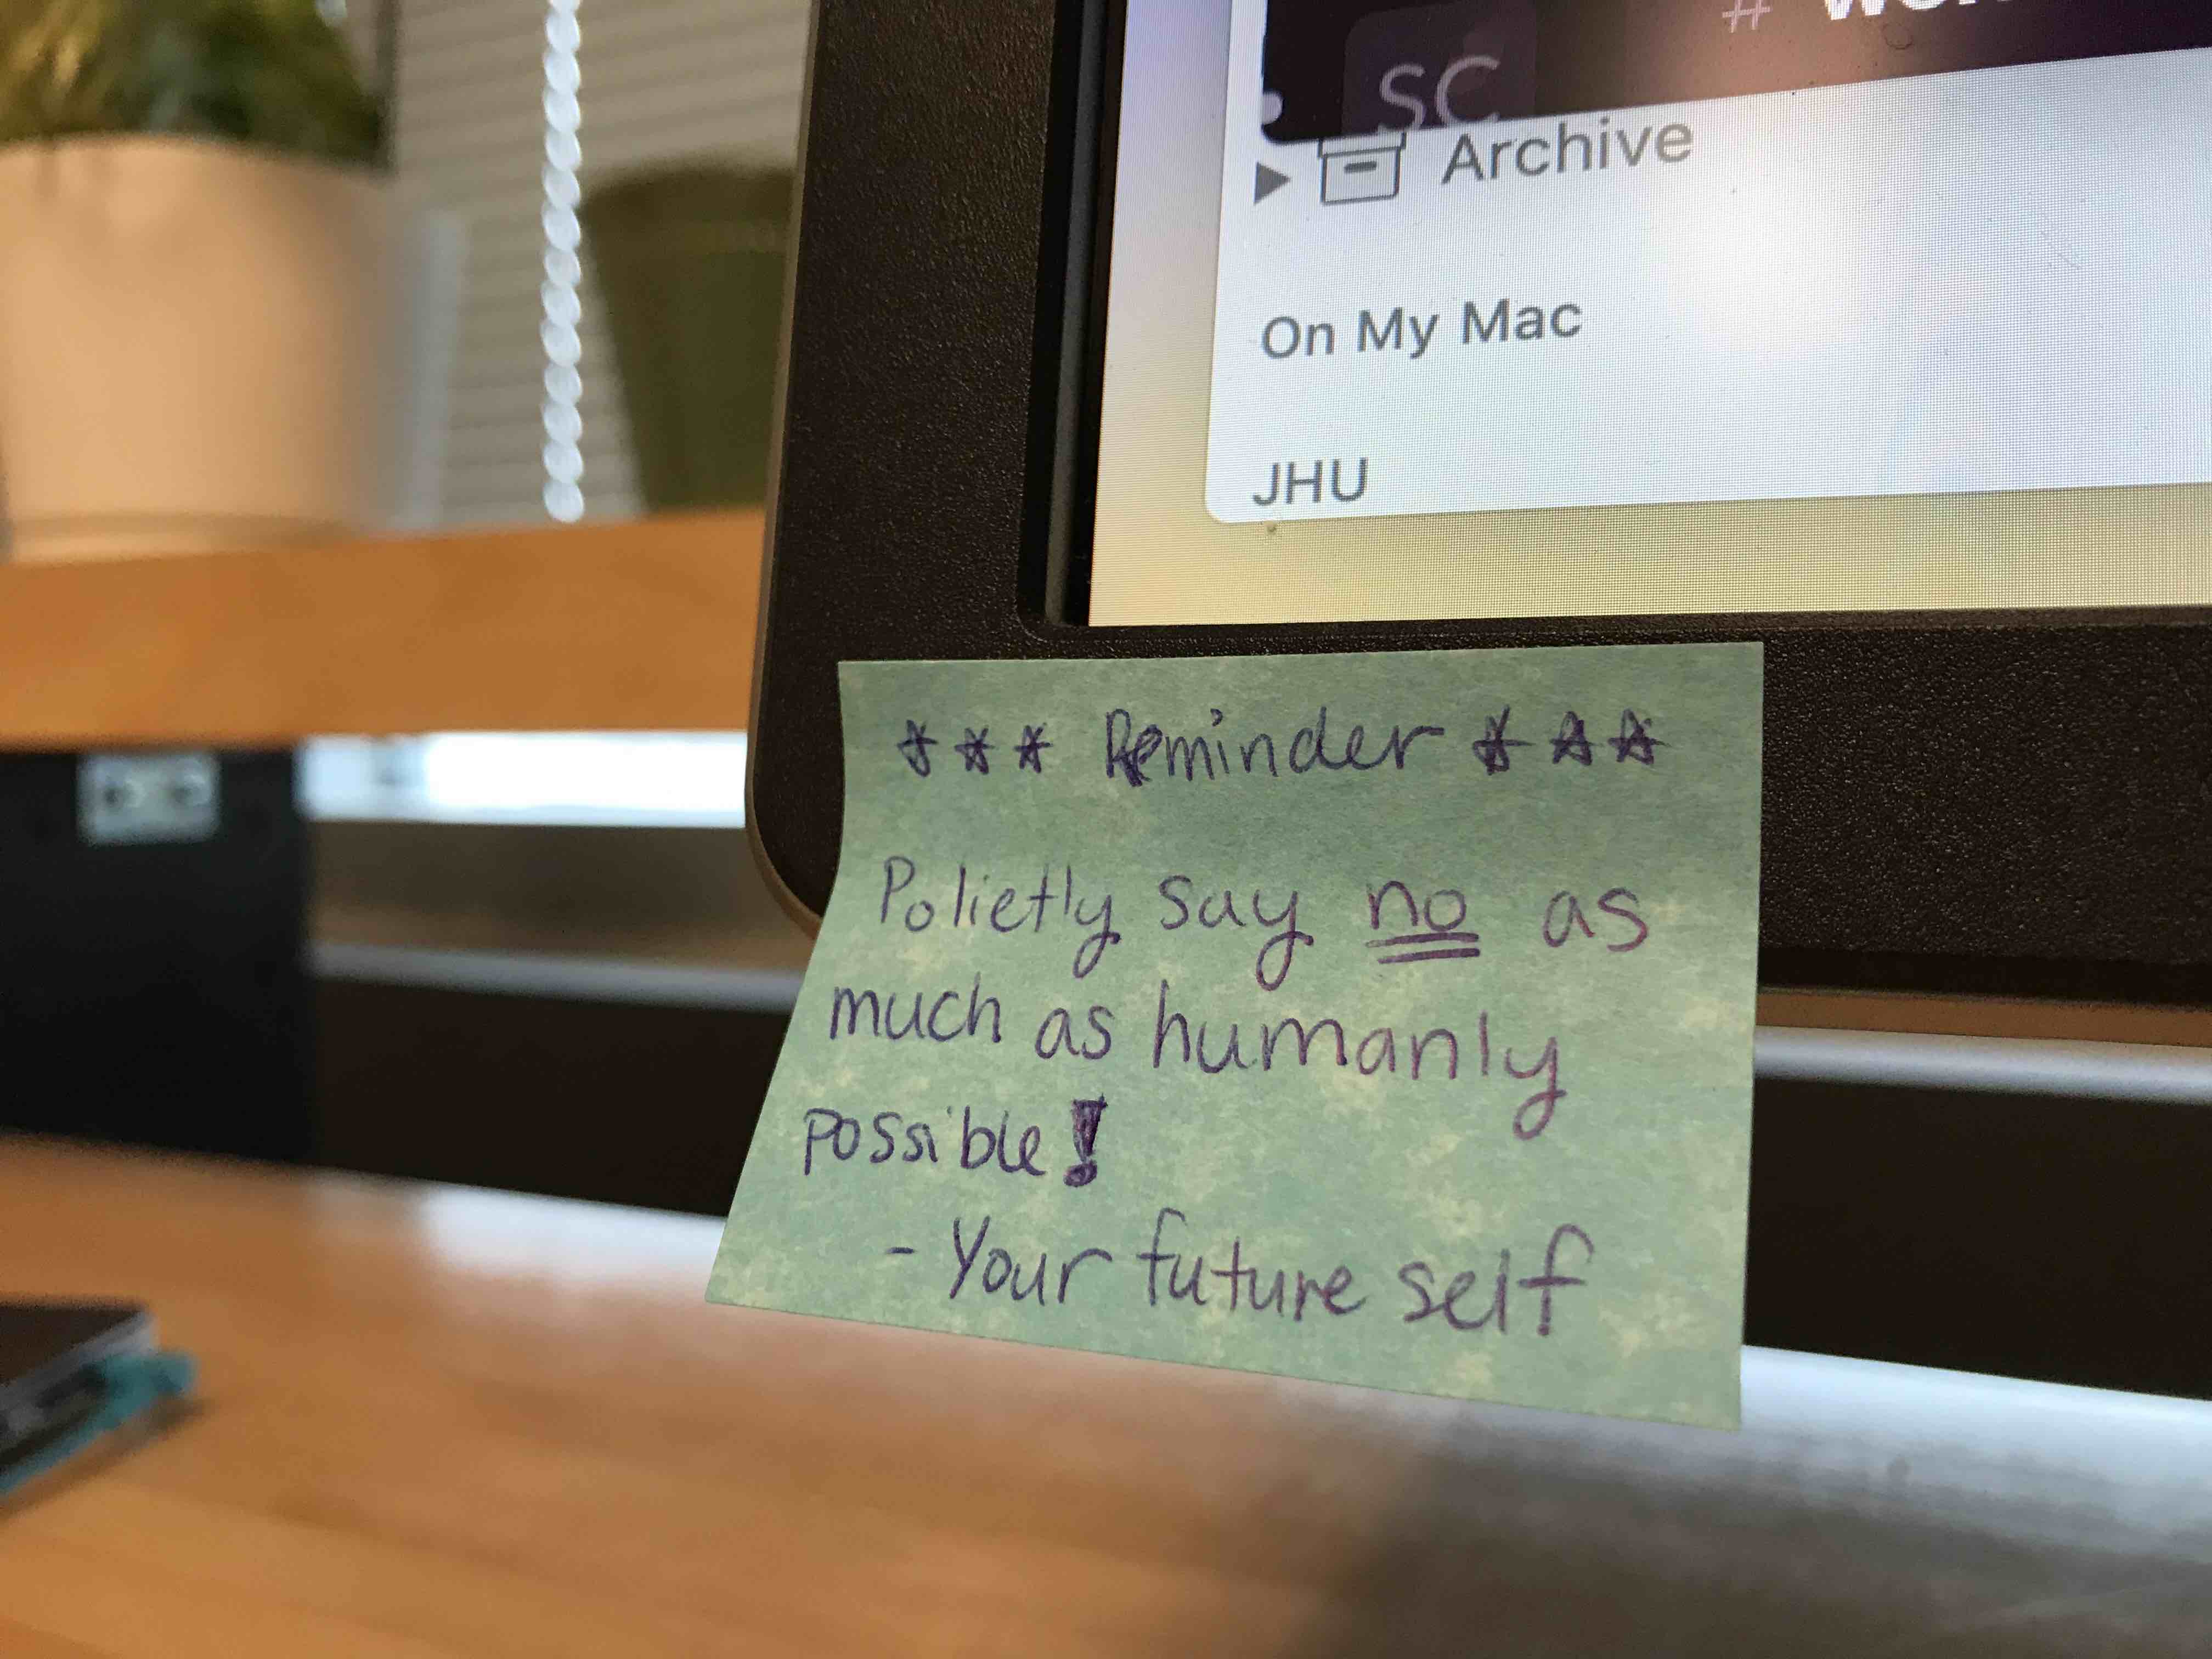 SC
Archive
On My Mac
JHU
*** Reminder ***
Polietly say no as
much as humanly
possible!
- Your future self